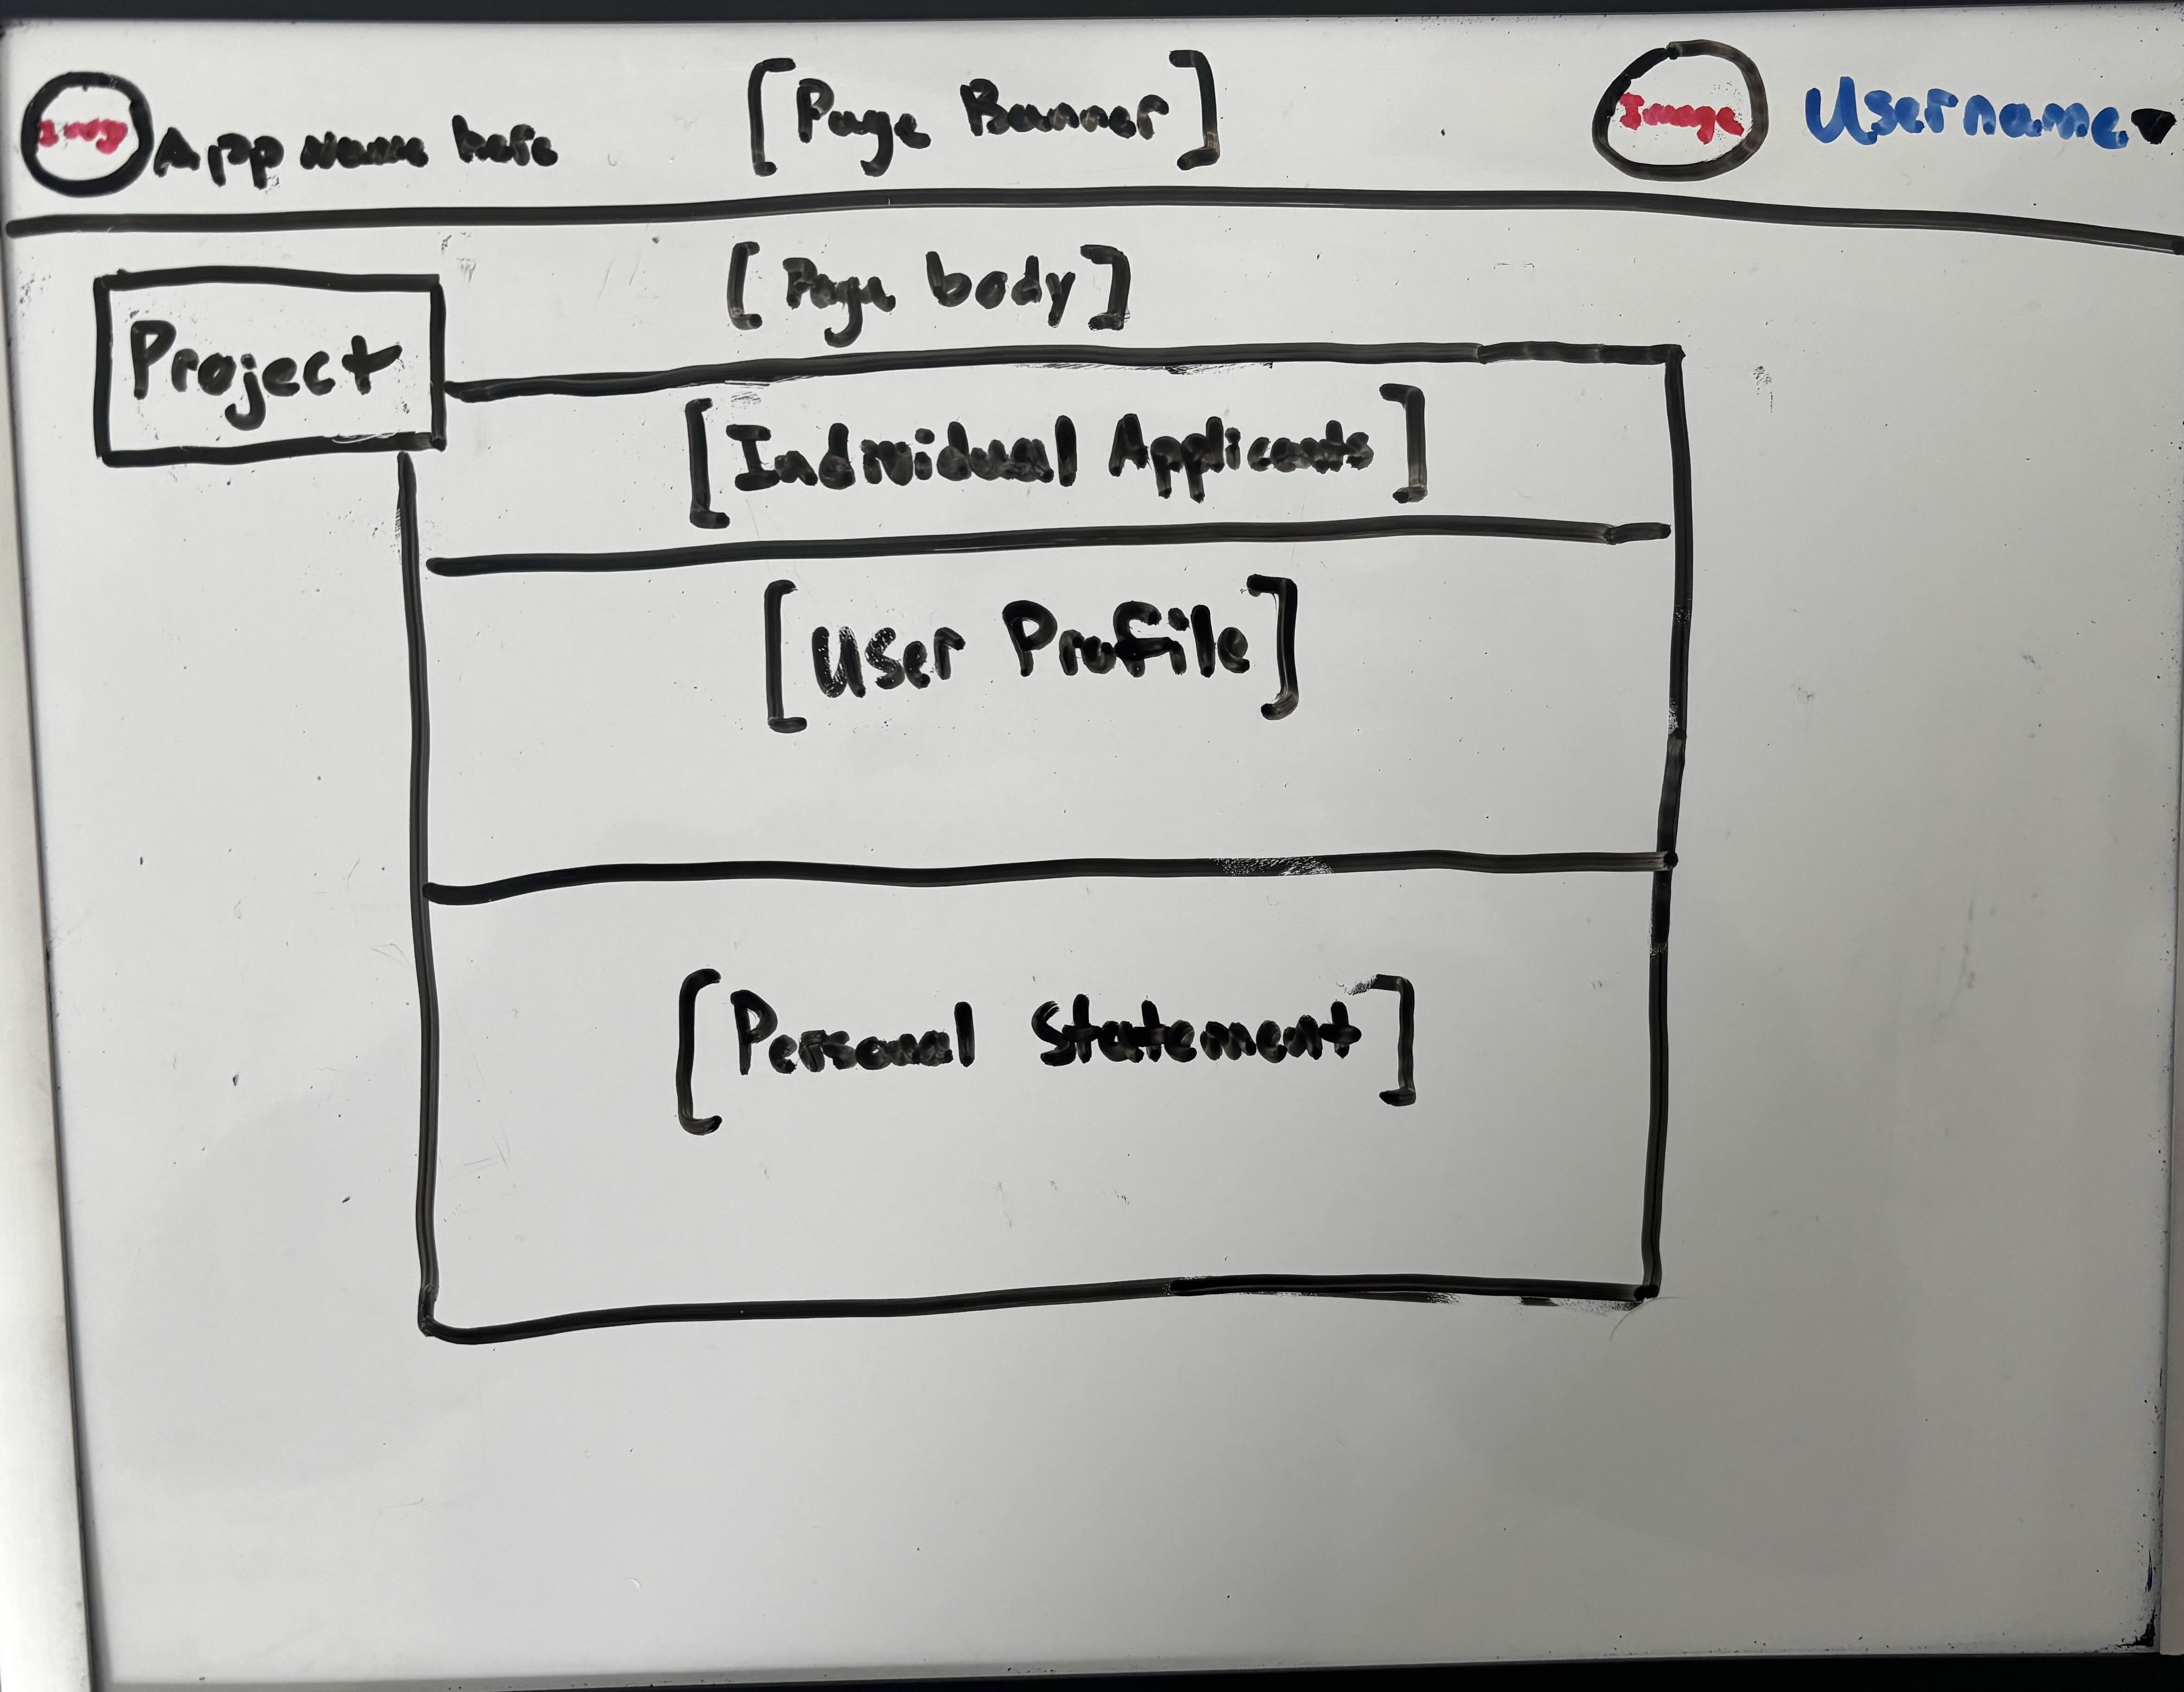 Img App Name here [Page Banner] Image Username
[Page body]
Project
[Individual Applicants]
[User Profile]
[Personal Statement]